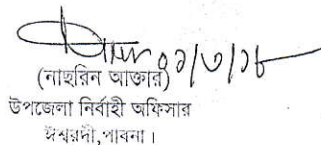 ০১/৩/১৮
(নাছরিন আক্তার)
উপজেলা নির্বাহী অফিসার
ঈশ্বরদী,পাবনা।